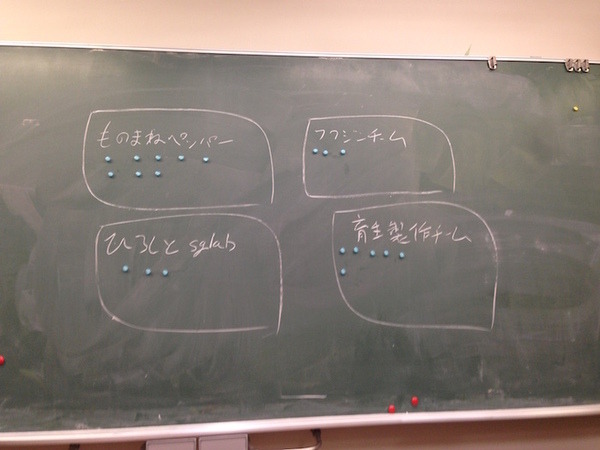 ものまねペッパー
フクシンチーム
ひろしと sglab
育毛製作チーム